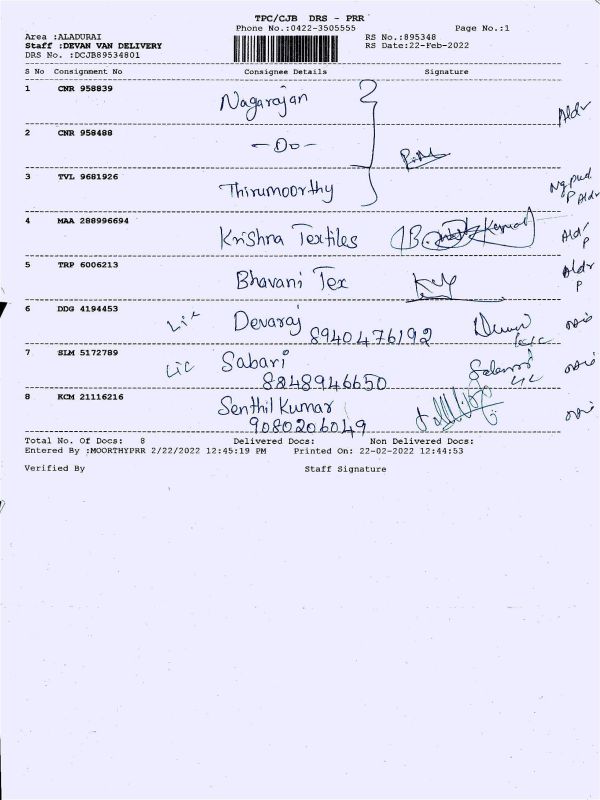 TPC/CJB DRS - PRR
Phone No.:0422-3505555 Page No.:1
Area :ALADURAI RS No.:895348
Staff :DEVAN VAN DELIVERY RS Date:22-Feb-2022
DRS No. :DCJB89534801
S No Consignment No Consignee Details Signature
1 CNR 958839 Nagarajan Aldr
2 CNR 958488 - Do -
3 TVL 9681926 Thirumoorthy P Aldr
4 MAA 288996694 Krishna Textiles Aldr P
5 TRP 6006213 Bhavani Tex Aldr P
6 DDG 4194453 Lic Devaraj 8940476192
7 SLM 5172789 Lic Sabari 8848946650
8 KCM 21116216 Senthil Kumar 9080206049
Total No. Of Docs: 8 Delivered Docs: Non Delivered Docs:
Entered By :MOORTHYPRR 2/22/2022 12:45:19 PM Printed On: 22-02-2022 12:44:53
Verified By Staff Signature